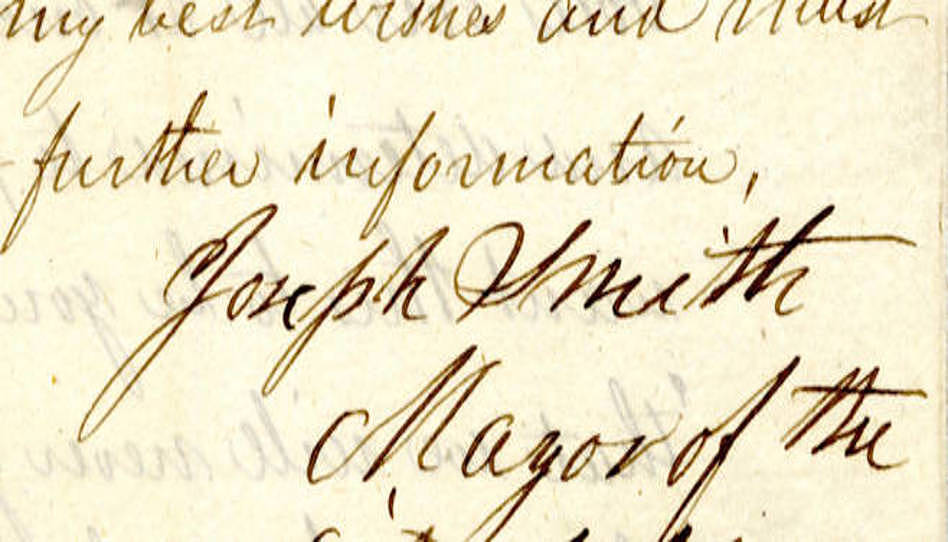 my best wishes and must
further information,
Joseph Smith
Mayor of the